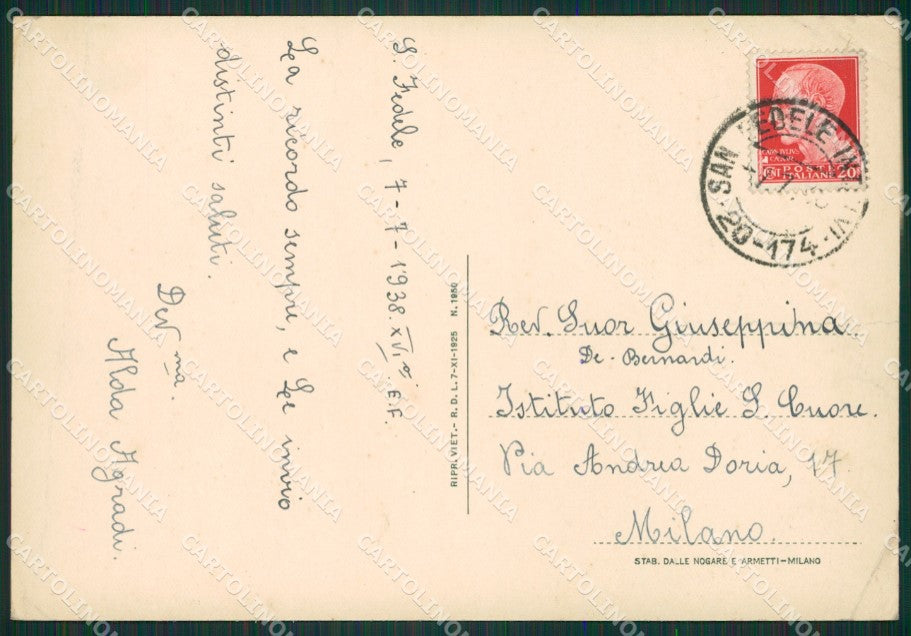 S. Fedele, 7-7-1938. XVIº. E.F.
La ricordo sempre, e Le invio
distinti saluti.
Dev.ma.
Alda Agradi.
RIPR. VIET. - R. D. L. 7-XI-1925 N. 1950
POSTE
ITALIANE
CENT 20
SAN FEDELE INTELVI
20-174
Rev. Suor Giuseppina
De-Bernardi.
Istituto Figlie S. Cuore.
Via Andrea Doria, 17
Milano.
STAB. DALLE NOGARE E ARMETTI-MILANO
CARTOLINOMANIA